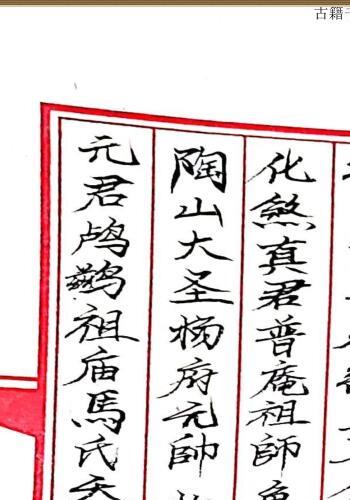 古籍
化煞真君普庵祖師
陶山大圣杨府元帥
元君鸬鹚祖庙馬氏